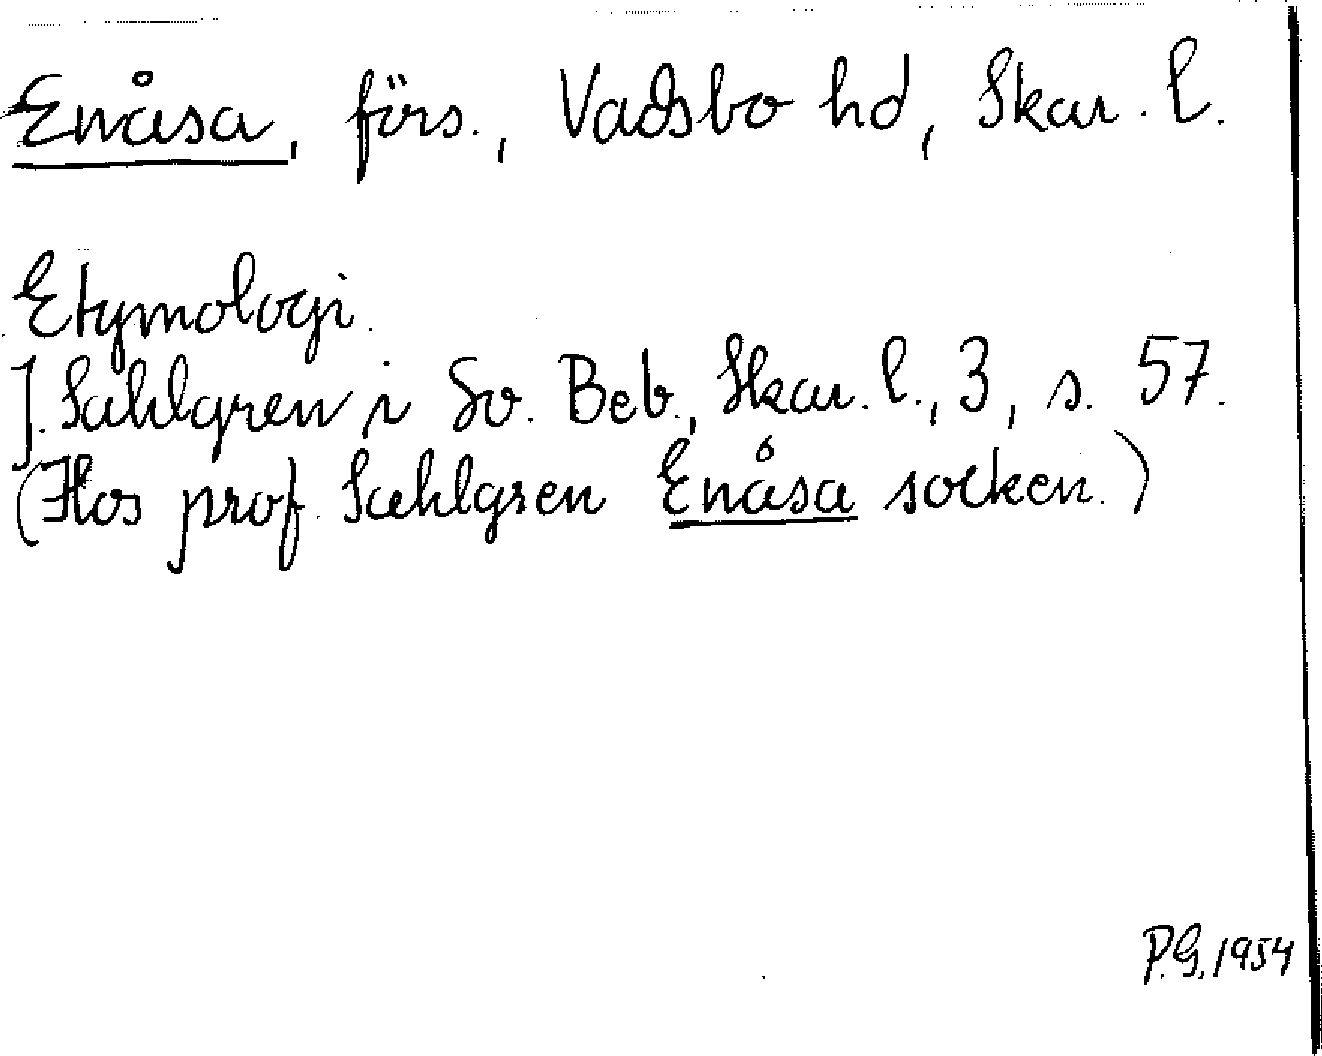 Enåsa, förs., Vadsbo hd, Skar. l.
Etymologi.
J. Sahlgren i Sv. Beb., Skar. l., 3, s. 57.
(Hos prof. Sahlgren Enåsa socken.)
P.G. 1954